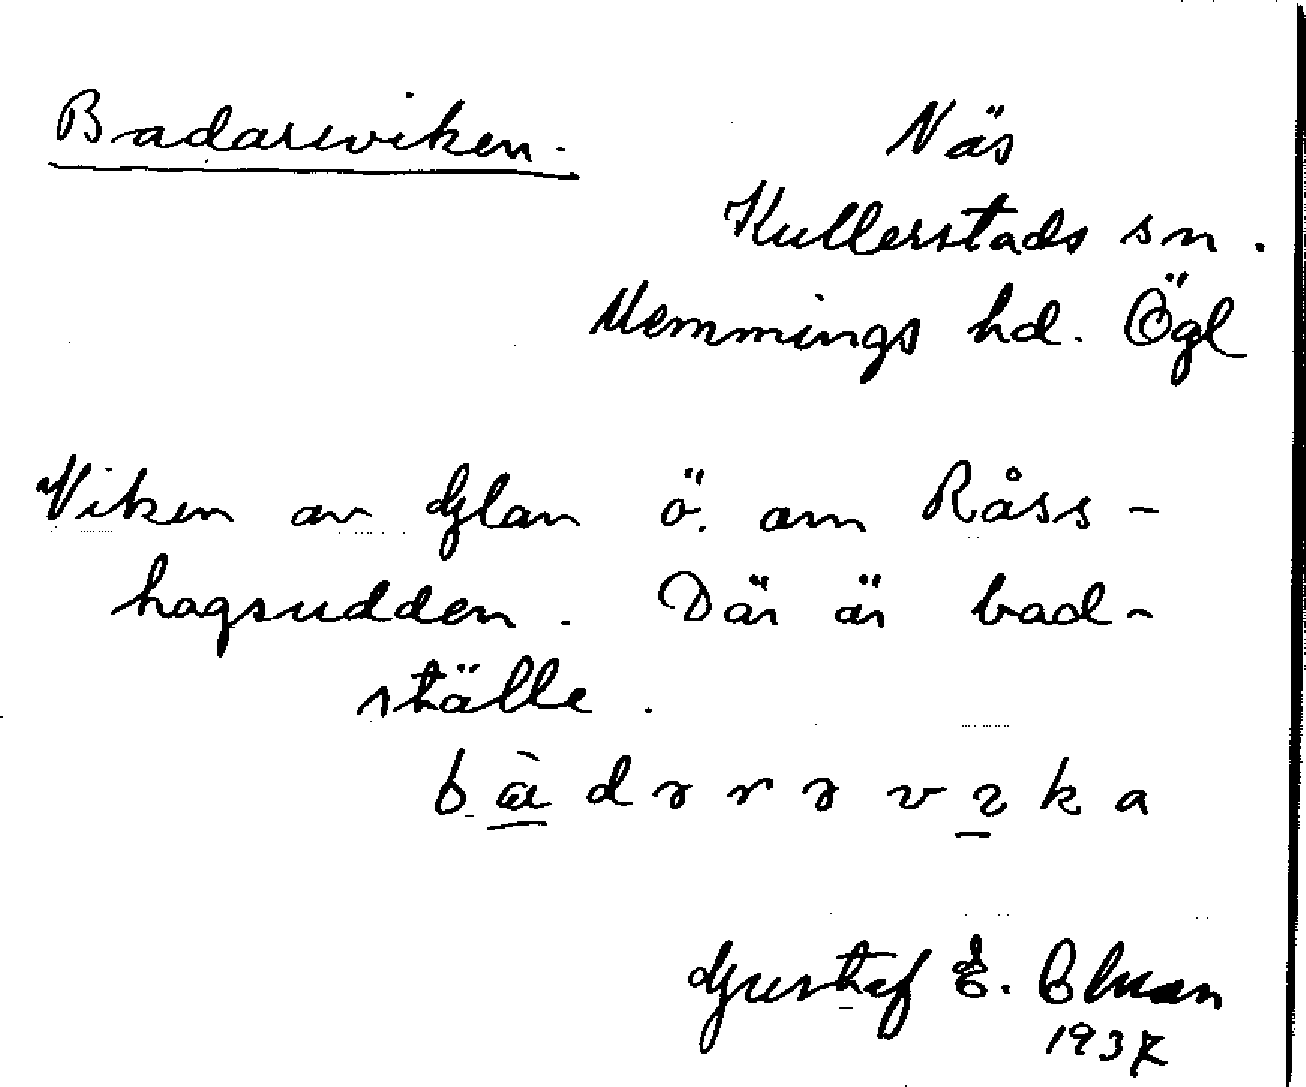 Badareviken.
Näs
Kullerstads sn.
Memmings hd. Ögl
Viken av Glan ö. om Råss-
hagsudden. Där är bad-
ställe.
Gustaf E.
1937